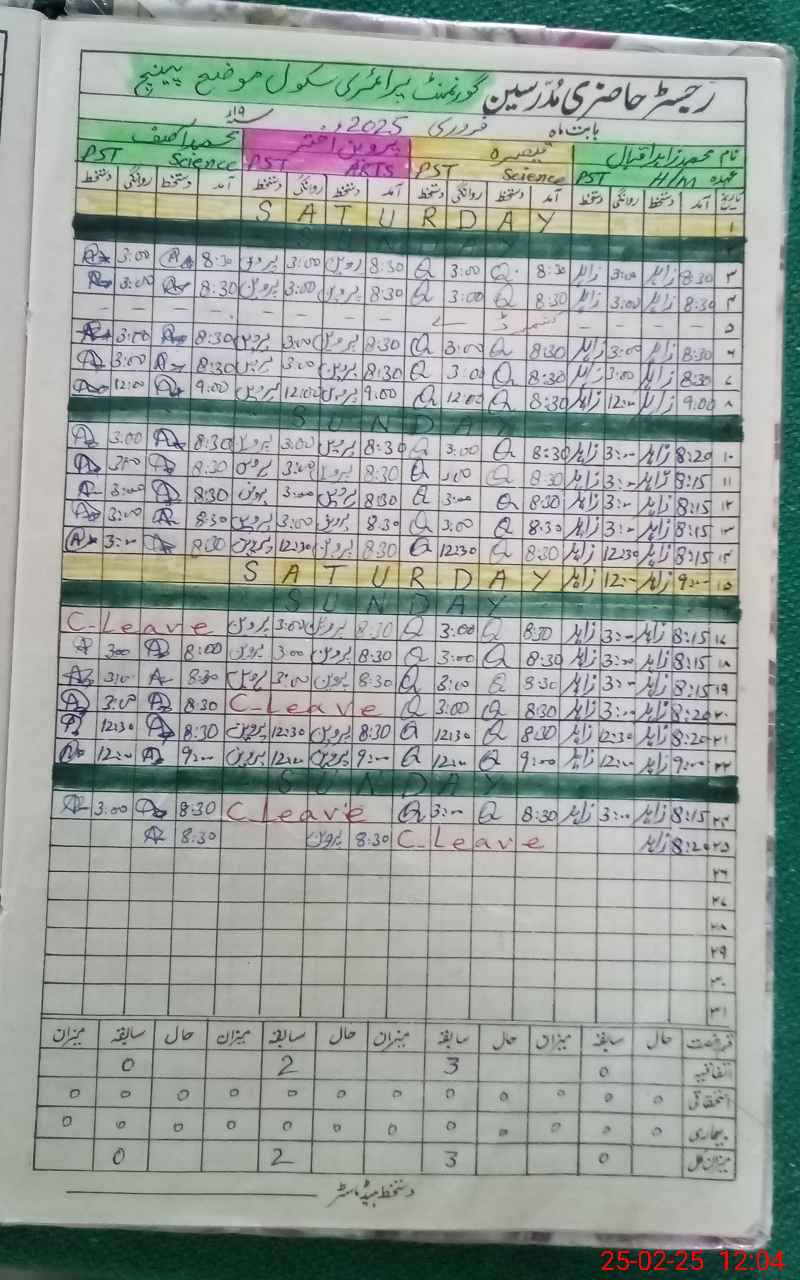 رجسٹر حاضری مدرسین گورنمنٹ پرائمری سکول موضع
بابت ماہ فروری 2025ء
نام محمد زاہد اقبال قیصرہ پروین اختر محمد آصف
عہدہ H/M PST Science PST ARTS PST Science PST
تاریخ آمد دستخط روانگی دستخط آمد دستخط روانگی دستخط آمد دستخط روانگی دستخط آمد دستخط روانگی دستخط
۱ SATURDAY
SUNDAY
۳ 8:30 زاہد 3:00 زاہد 8:30 Q 3:00 Q 8:30 پروین 3:00 پروین 8:30 3:00
۴ 8:30 زاہد 3:00 زاہد 8:30 Q 3:00 Q 8:30 پروین 3:00 پروین 8:30 3:00
۵ – – – – کشمیر ڈے – – – –
۶ 8:30 زاہد 3:00 زاہد 8:30 Q 3:00 Q 8:30 پروین 3:00 پروین 8:30 3:00
۷ 8:30 زاہد 3:00 زاہد 8:30 Q 3:00 Q 8:30 پروین 3:00 پروین 8:30 3:00
۸ 9:00 زاہد 12:00 زاہد 8:30 Q 12:00 Q 9:00 پروین 12:00 پروین 9:00 12:00
SUNDAY
۱۰ 8:20 زاہد 3:00 زاہد 8:30 Q 3:00 Q 8:30 پروین 3:00 پروین 8:30 3:00
۱۱ 8:15 زاہد 3:00 زاہد 8:30 Q 3:00 Q 8:30 پروین 3:00 پروین 8:30 3:00
۱۲ 8:15 زاہد 3:00 زاہد 8:30 Q 3:00 Q 8:30 پروین 3:00 پروین 8:30 3:00
۱۳ 8:15 زاہد 3:00 زاہد 8:30 Q 3:00 Q 8:30 پروین 3:00 پروین 8:30 3:00
۱۴ 8:15 زاہد 12:30 زاہد 8:30 Q 12:30 Q 8:30 پروین 12:30 پروین 8:30 3:00
۱۵ 9:00 زاہد 12:00 زاہد SATURDAY
SUNDAY
8:15 زاہد 3:00 زاہد 8:30 Q 3:00 Q 8:30 پروین 3:00 پروین C-Leave
۱۸ 8:15 زاہد 3:00 زاہد 8:30 Q 3:00 Q 8:30 پروین 3:00 پروین 8:00 3:00
۱۹ 8:15 زاہد 3:00 زاہد 8:30 Q 3:00 Q 8:30 پروین 3:00 پروین 8:30 3:00
۲۰ 8:20 زاہد 3:00 زاہد 8:30 Q 3:00 Q C-Leave 8:30 3:00
۲۱ 8:20 زاہد 12:30 زاہد 8:30 Q 12:30 Q 8:30 پروین 12:30 پروین 8:30 12:30
۲۲ 9:00 زاہد 12:00 زاہد 9:00 Q 12:00 Q 9:00 پروین 12:00 پروین 9:00 12:00
SUNDAY
۲۴ 8:15 زاہد 3:00 زاہد 8:30 Q 3:00 Q C-Leave 8:30 3:00
۲۵ 8:20 زاہد C-Leave 8:30 پروین 8:30
۲۶
۲۷
۲۸
۲۹
۳۰
۳۱
رخصت حال سابقہ میزان حال سابقہ میزان حال سابقہ میزان حال سابقہ میزان
اتفاقیہ 0 3 2 0
استحقاقی 0 0 0 0 0 0 0 0 0 0 0 0
بیماری 0 0 0 0 0 0 0 0 0 0 0 0
میزان کل 0 3 2 0
دستخط ہیڈ ماسٹر
25-02-25 12:04